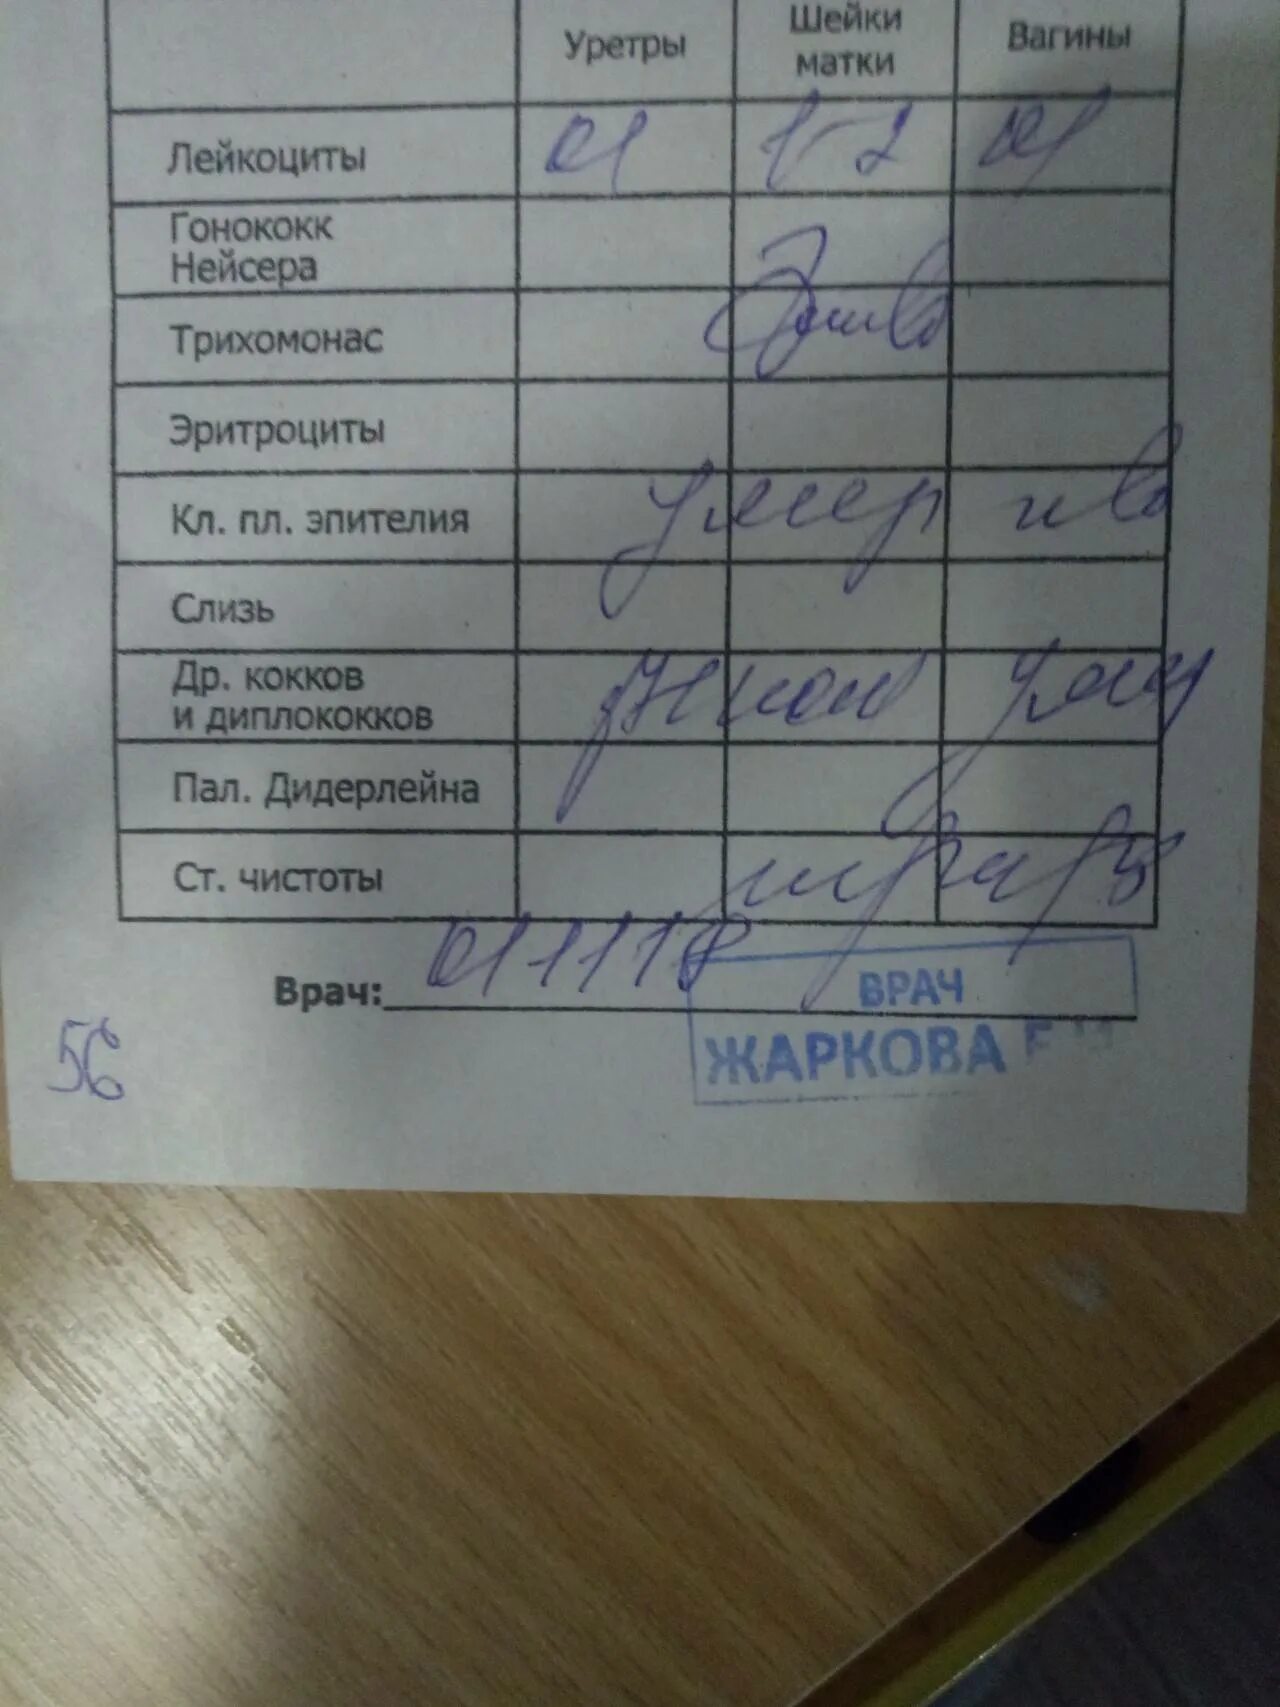 Уретры Шейки матки Вагины
Лейкоциты 01 1-2 01
Гонококк
Нейсера
Трихомонас
Эритроциты
Кл. пл. эпителия умер
Слизь
Др. кокков
и диплококков
Пал. Дидерлейна
Ст. чистоты
Врач: 011118
ВРАЧ
ЖАРКОВА
56